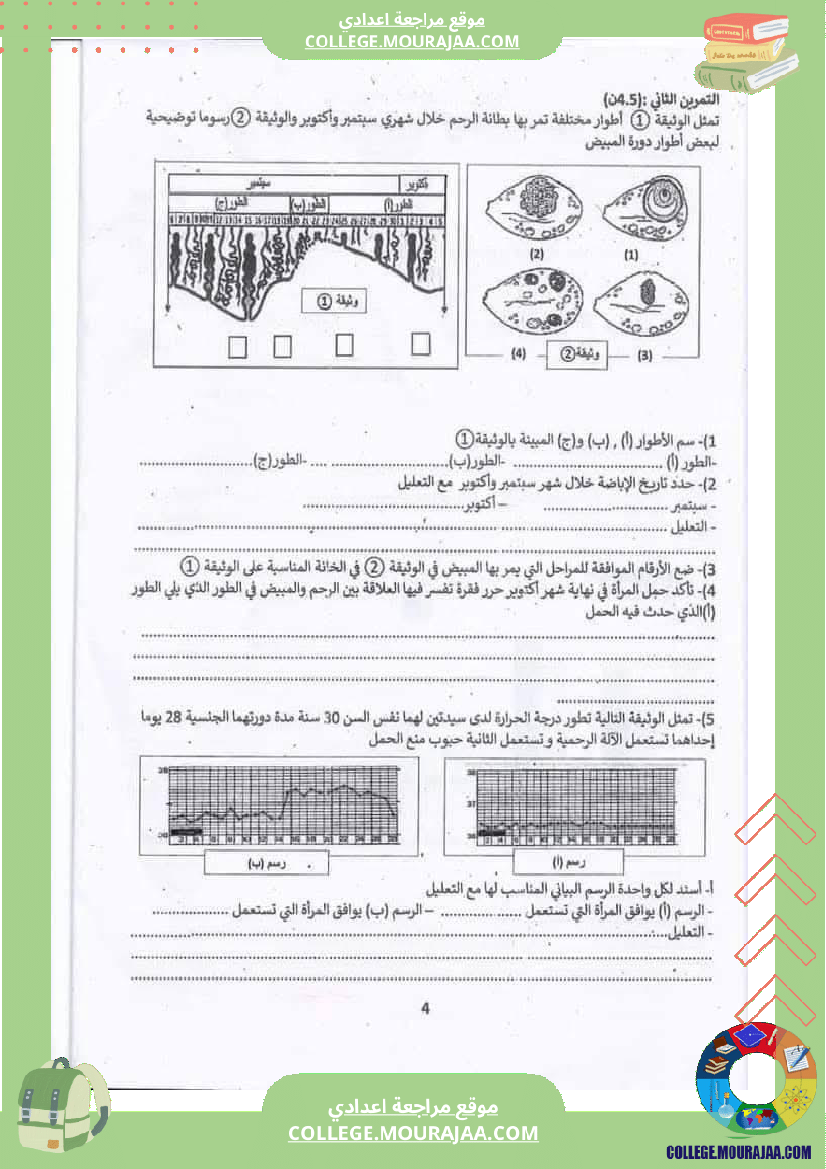 موقع مراجعة اعدادي
COLLEGE.MOURAJAA.COM
التمرين الثاني :(4.5ن)
تمثل الوثيقة ① أطوار مختلفة تمر بها بطانة الرحم خلال شهري سبتمبر وأكتوبر والوثيقة ② رسوما توضيحية
لبعض أطوار دورة المبيض
أكتوبر
سبتمبر
الطور(أ)
الطور(ب)
الطور(ج)
وثيقة ①
(1)
(2)
(3)
(4)
وثيقة②
1)- سم الأطوار (أ) , (ب) و(ج) المبينة بالوثيقة①
-الطور (أ) ........................ -الطور(ب)........................ -الطور(ج)........................
2)- حدد تاريخ الإباضة خلال شهر سبتمبر وأكتوبر مع التعليل
- سبتمبر ........................ – أكتوبر........................
- التعليل ........................
3)- ضع الأرقام الموافقة للمراحل التي يمر بها المبيض في الوثيقة ② في الخانة المناسبة على الوثيقة ①
4)- تأكد حمل المرأة في نهاية شهر أكتوبر حرر فقرة تفسر فيها العلاقة بين الرحم والمبيض في الطور الذي يلي الطور
(أ)الذي حدث فيه الحمل
5)- تمثل الوثيقة التالية تطور درجة الحرارة لدى سيدتين لهما نفس السن 30 سنة مدة دورتهما الجنسية 28 يوما
إحداهما تستعمل الآلة الرحمية و تستعمل الثانية حبوب منع الحمل
38
37
36
رسم (أ)
رسم (ب)
أ- أسند لكل واحدة الرسم البياني المناسب لها مع التعليل
- الرسم (أ) يوافق المرأة التي تستعمل .................... – الرسم (ب) يوافق المرأة التي تستعمل ....................
- التعليل........................
4
موقع مراجعة اعدادي
COLLEGE.MOURAJAA.COM
COLLEGE.MOURAJAA.COM